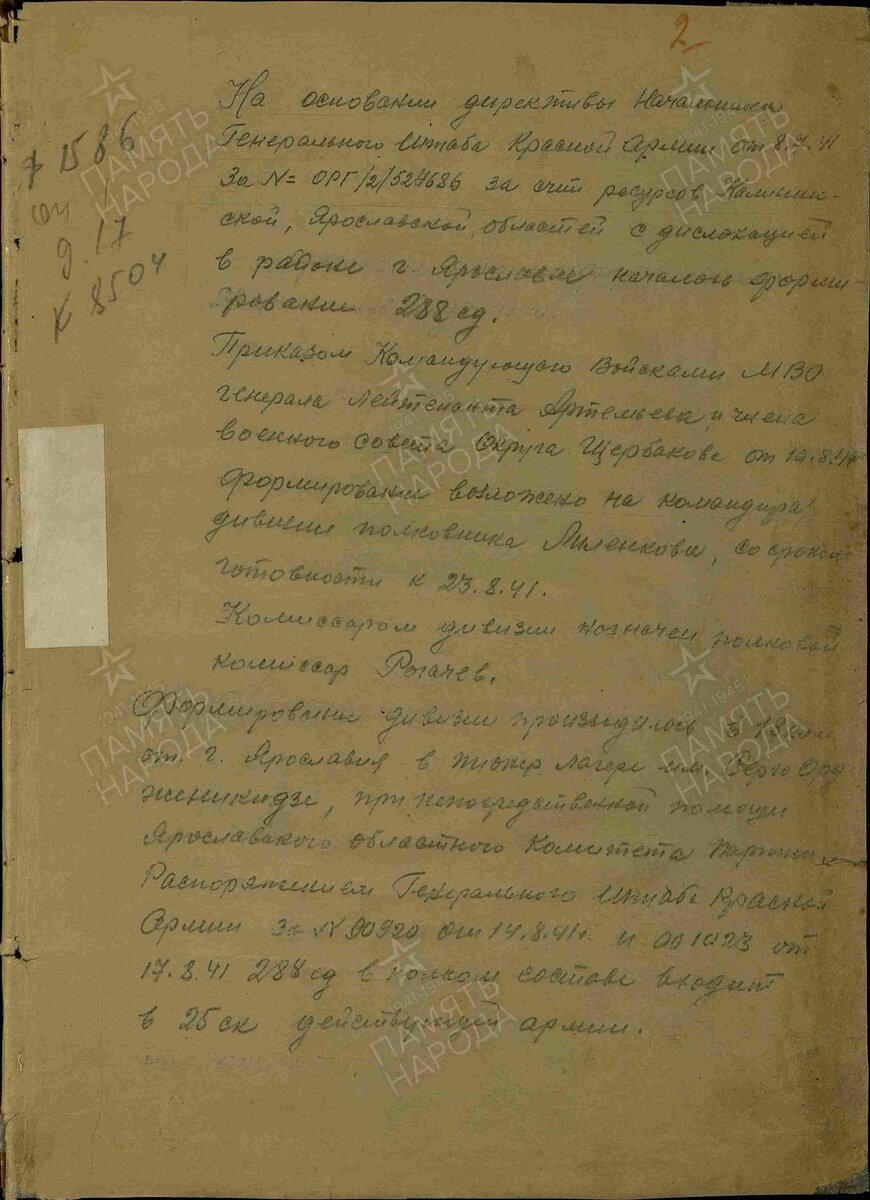 2
На основании директивы Начальника
Генерального Штаба Красной Армии от 8.7.41
За №= ОРГ/2/524686 за счет ресурсов Калинин-
ской, Ярославской областей с дислокацией
в районе г. Ярославля началось форми-
рование 288 сд.
Приказом Командующего Войсками МВО
генерала лейтенанта Артемьева и члена
военного совета Округа Щербакова от
формирование возложено на командира
дивизии полковника со сроком
готовности к 23.8.41.
Комиссаром дивизии назначен полковой
комиссар Рогачев.
Формирование дивизии производилось в 18 клм
от г. Ярославля в пионер лагере им. Серго Орд-
женикидзе, при непосредственной помощи
Ярославского областного Комитета партии
Распоряжением Генерального Штаба Красной
Армии За № 90920 от 14.8.41г. и от
17.8.41 288 сд в полном составе входит
в 25 ск действующей армии.
1586
оп 1
д. 17
к 8504
ПАМЯТЬ
НАРОДА
1941-1945
ПАМЯТЬ
НАРОДА
1941-1945
ПАМЯТЬ
НАРОДА
1941-1945
ПАМЯТЬ
НАРОДА
1941-1945
ПАМЯТЬ
НАРОДА
1941-1945
ПАМЯТЬ
НАРОДА
1941-1945